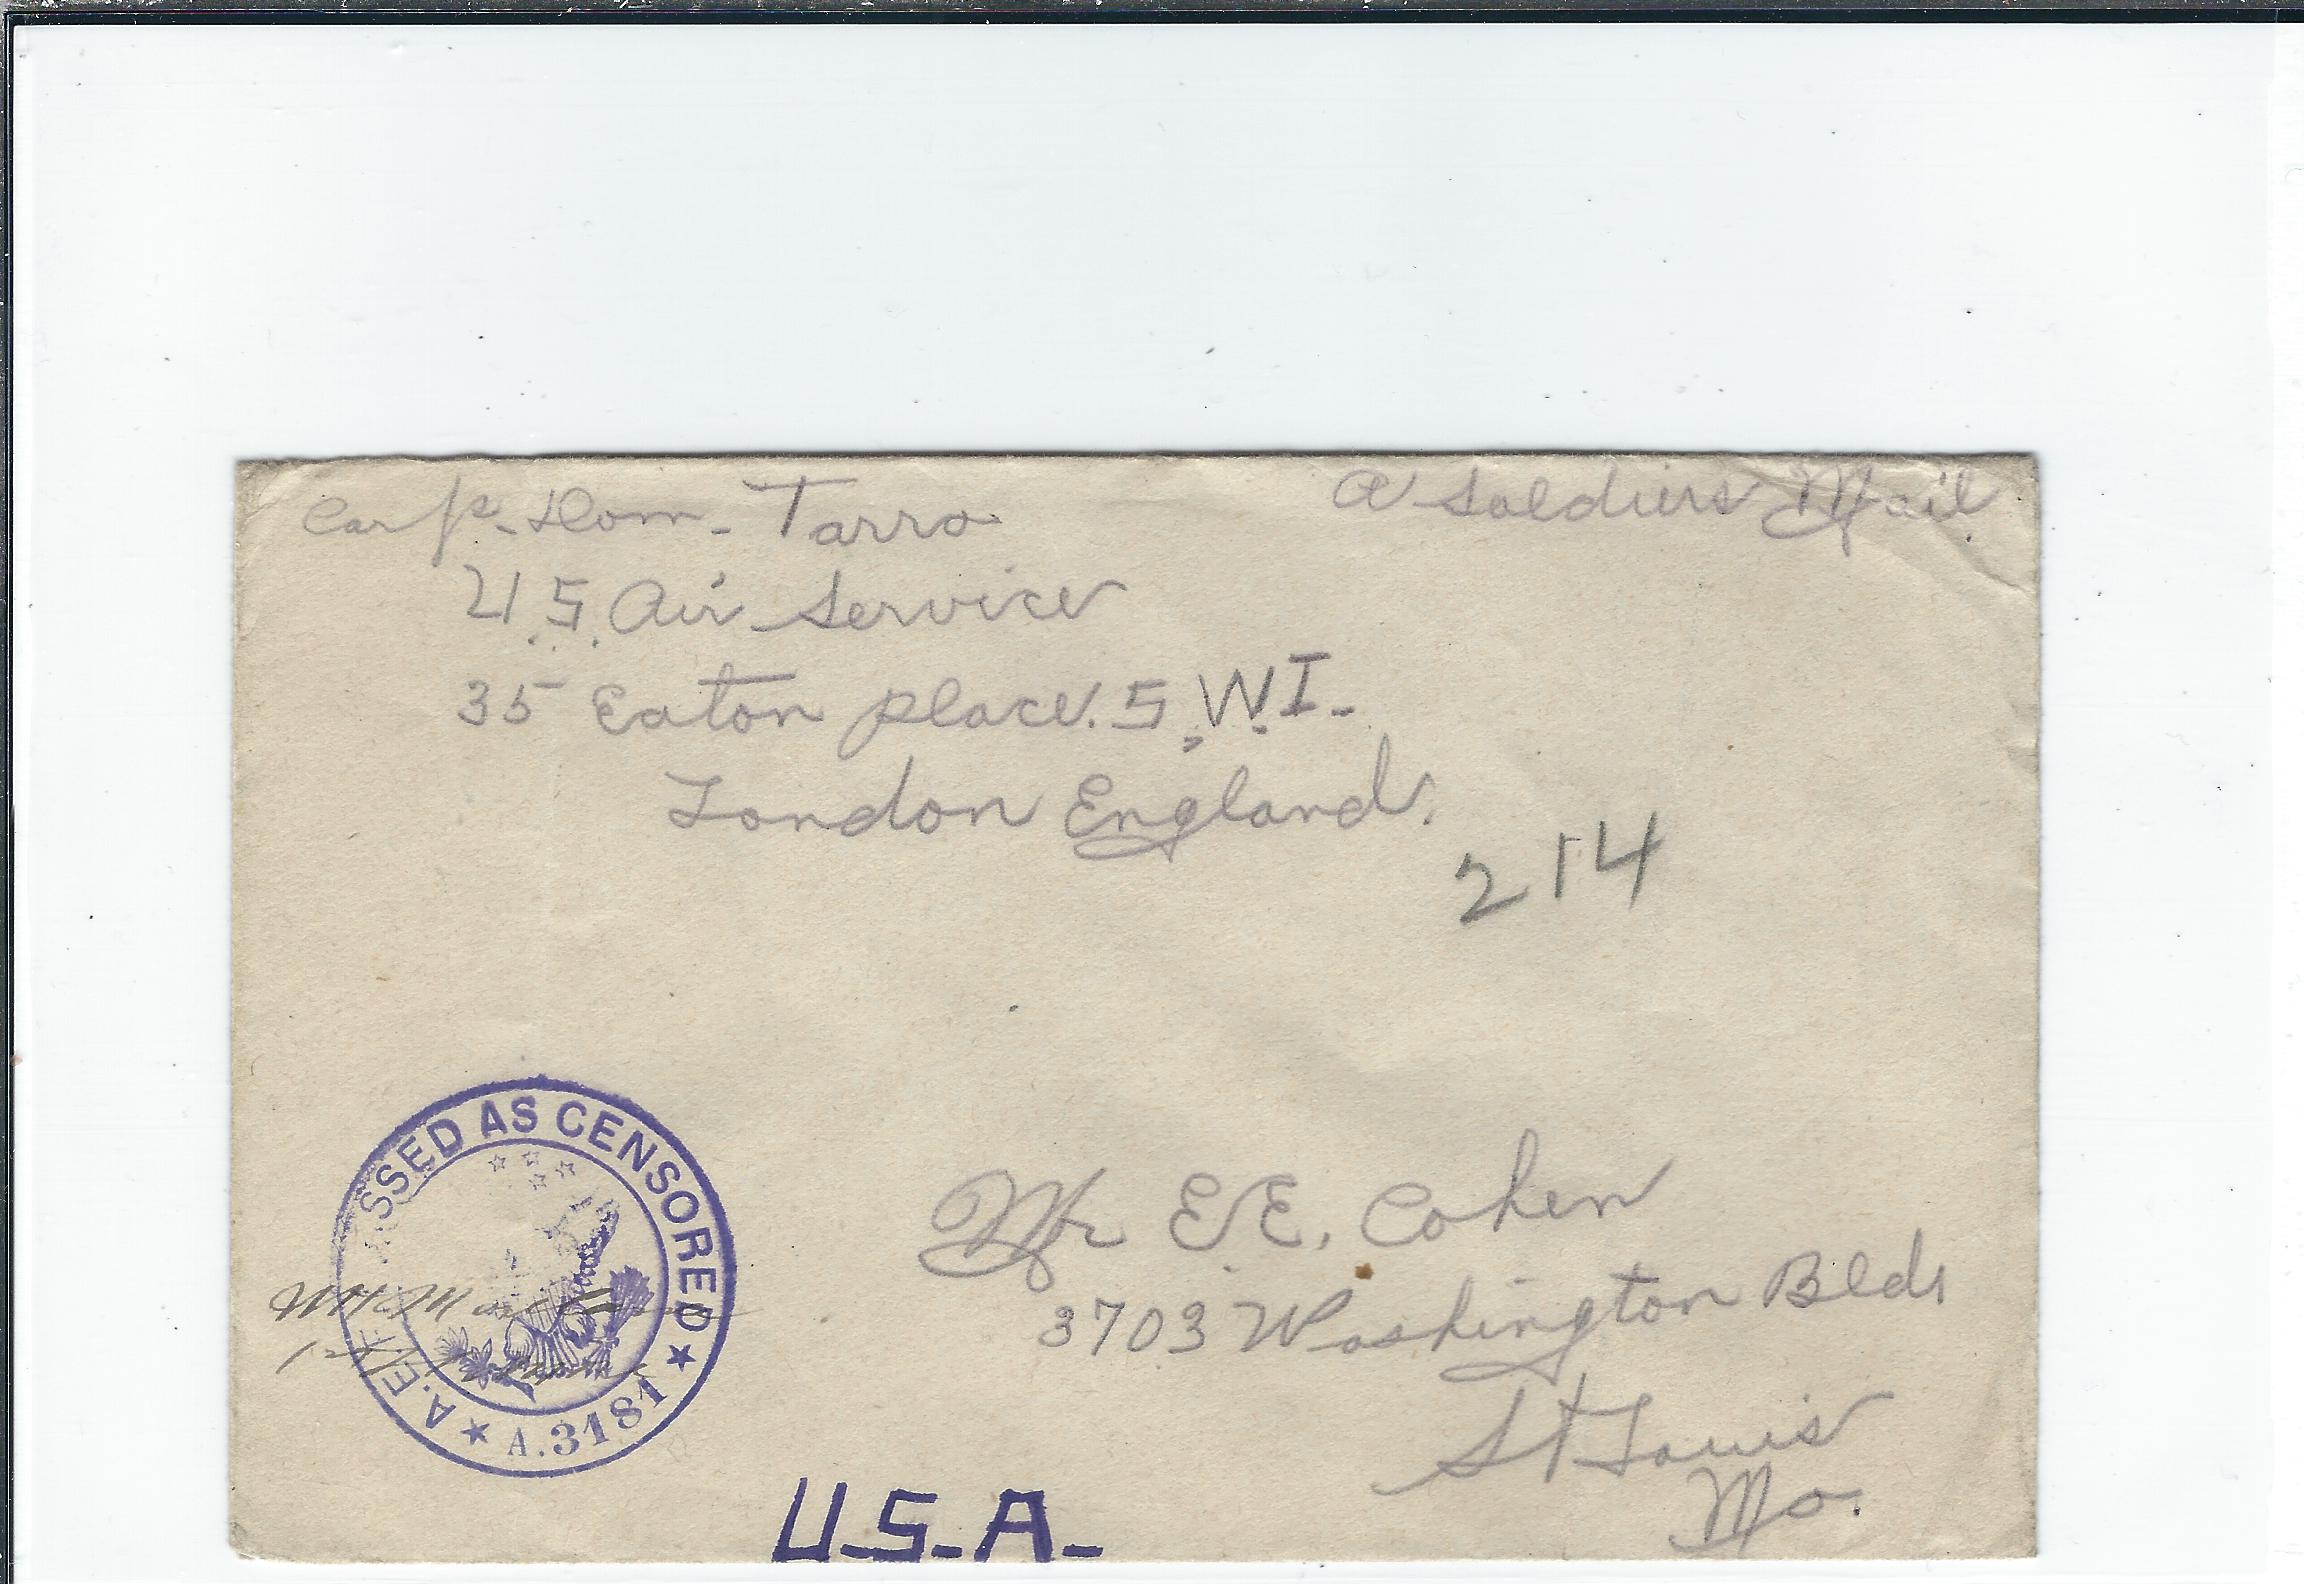 Corp. Dom. Tarro
A Soldiers Mail
U.S. Air Service
35 Eaton place. S.W.I.
London England.
214
SSED AS CENSORED
A.E.F.
A.3181
Mr E.E. Cohen
3703 Washington Bld
St Louis
Mo.
U.S.A.